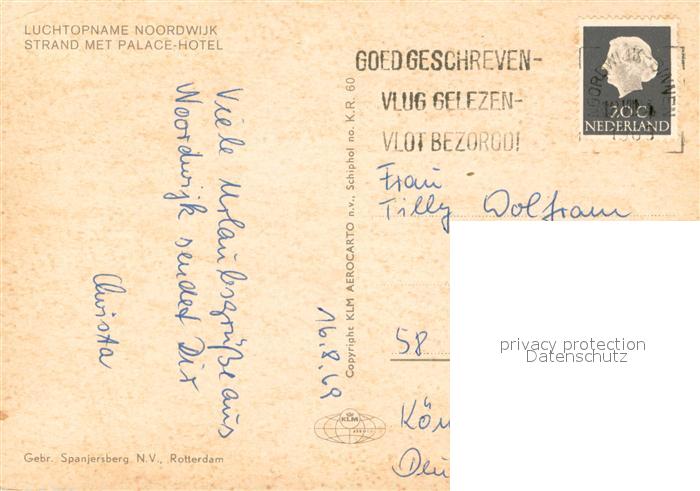 LUCHTOPNAME NOORDWIJK
STRAND MET PALACE-HOTEL
GOED GESCHREVEN-
VLUG GELEZEN-
VLOT BEZORGD!
20 C
NEDERLAND
Viele Urlaubsgrüße aus
Noordwijk sendet Dir
Christa
16.8.69
Copyright KLM AEROCARTO n.v., Schiphol no. K.R. 60
KLM
Frau
Tilly Wolfram
58
privacy protection
Datenschutz
Gebr. Spanjersberg N.V., Rotterdam